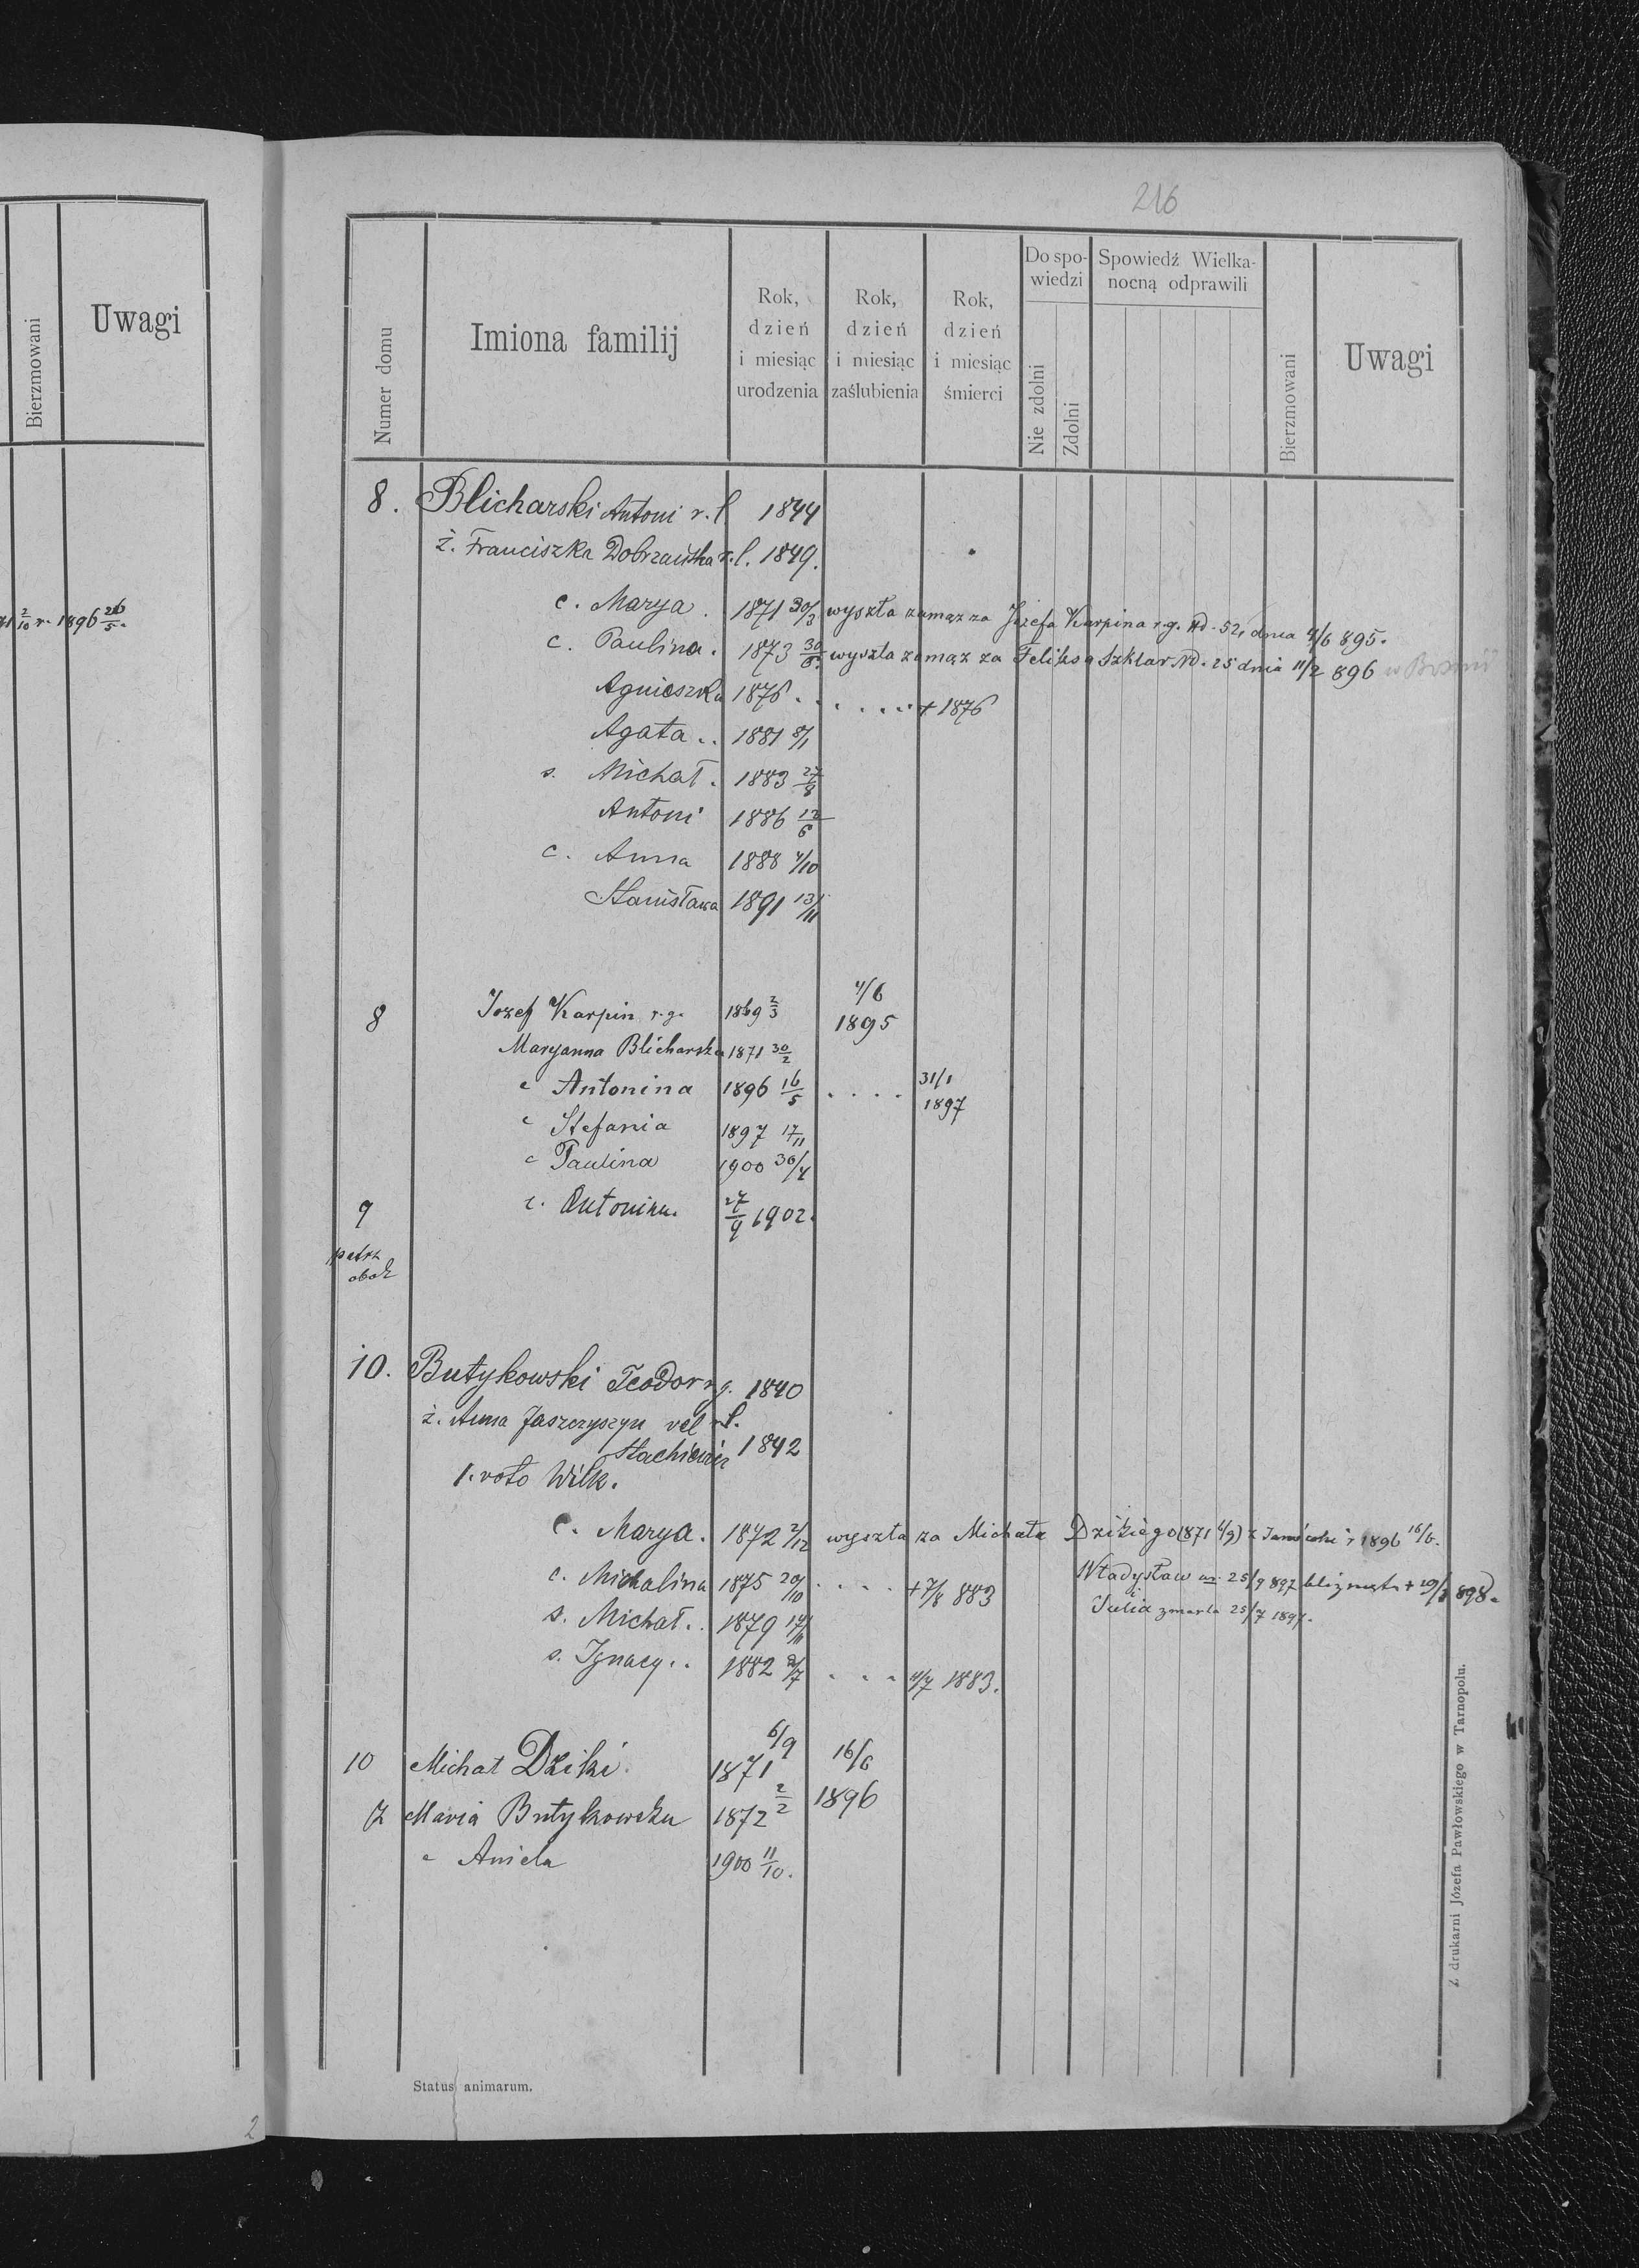 Bierzmowani
Uwagi
2/10 r. 1896 26/5.
2
216
Numer domu
Imiona familij
Rok, dzień i miesiąc urodzenia
Rok, dzień i miesiąc zaślubienia
Rok, dzień i miesiąc śmierci
Do spowiedzi
Nie zdolni
Zdolni
Spowiedź Wielkanocną odprawili
Bierzmowani
Uwagi
8. Blicharski Antoni r. l. 1844
ż. Franciszka Dobrzańska r. l. 1849.
c. Marya. 1871 30/3 wyszła zamąż za Józefa Karpina r.g. Nd. 52, dnia 4/6 895.
c. Paulina. 1873 30/6. wyszla zamąż za Feliksa Szklar Nd. 25 dnia 11/2 896 w
Agnieszka 1876 . . . . . . . + 1876
Agata .. 1881 8/1
s. Michał. 1883 27/8
Antoni 1886 12/6
c. Anna 1888 4/10
Stanisława 1891 13/11
8 Jozef Karpin r.g. 1869 2/3 4/6 1895
Maryanna Blicharska 1871 30/2
c Antonina 1896 16/5 . . . . 31/1 1897
c Stefania 1897 17/11
c Paulina 1900 30/4
c. Antonina. 27/9 1902.
9
patrz
obok
10. Butykowski Teodor r.g. 1840
ż. Anna Jaszczyszyn vel r.l.
Stachiewicz 1842
1. voto Wilk.
c. Marya. 1872 2/12 wyszła za Michała Dzikiego (871 6/9) z r 1896 16/6.
c. Michalina 1875 20/10 . . . . + 7/8 883
Władysław ur. 25/7 897 bliznięta + 19/3 898.
i
Julia zmarla 25/7 1897.
s. Michał.. 1879 17/11
s. Ignacy.. 1882 2/7 . . . 11/7 1883.
10 Michał Dziki. 6/9 1871 16/6 1896
Ż Maria Butykowska 1872 2/2
c Aniela 1900 11/10.
Status animarum.
Z drukarni Józefa Pawłowskiego w Tarnopolu.